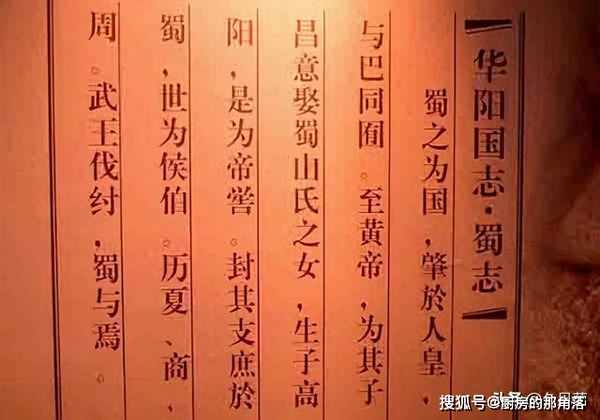 【华阳国志·蜀志】
蜀之为国，肇於人皇，
与巴同囿。至黄帝，为其子
昌意娶蜀山氏之女，生子高
阳，是为帝喾。封其支庶於
蜀，世为侯伯。历夏、商，
周。武王伐纣，蜀与焉。
搜狐号@厨房的那角落